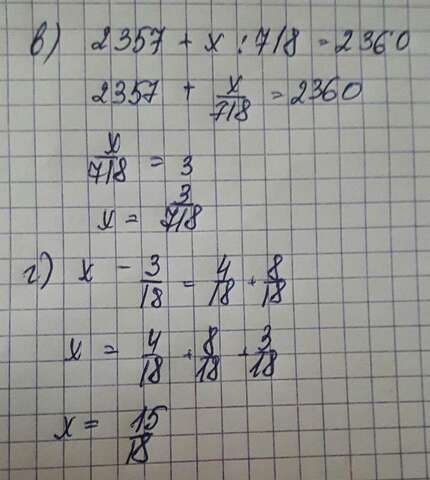 в) 2357 + x : 718 = 2360
2357 + x/718 = 2360
x/718 = 3
x = 3/718
г) x - 3/18 = 4/18 + 8/18
x = 4/18 + 8/18 + 3/18
x = 15/18